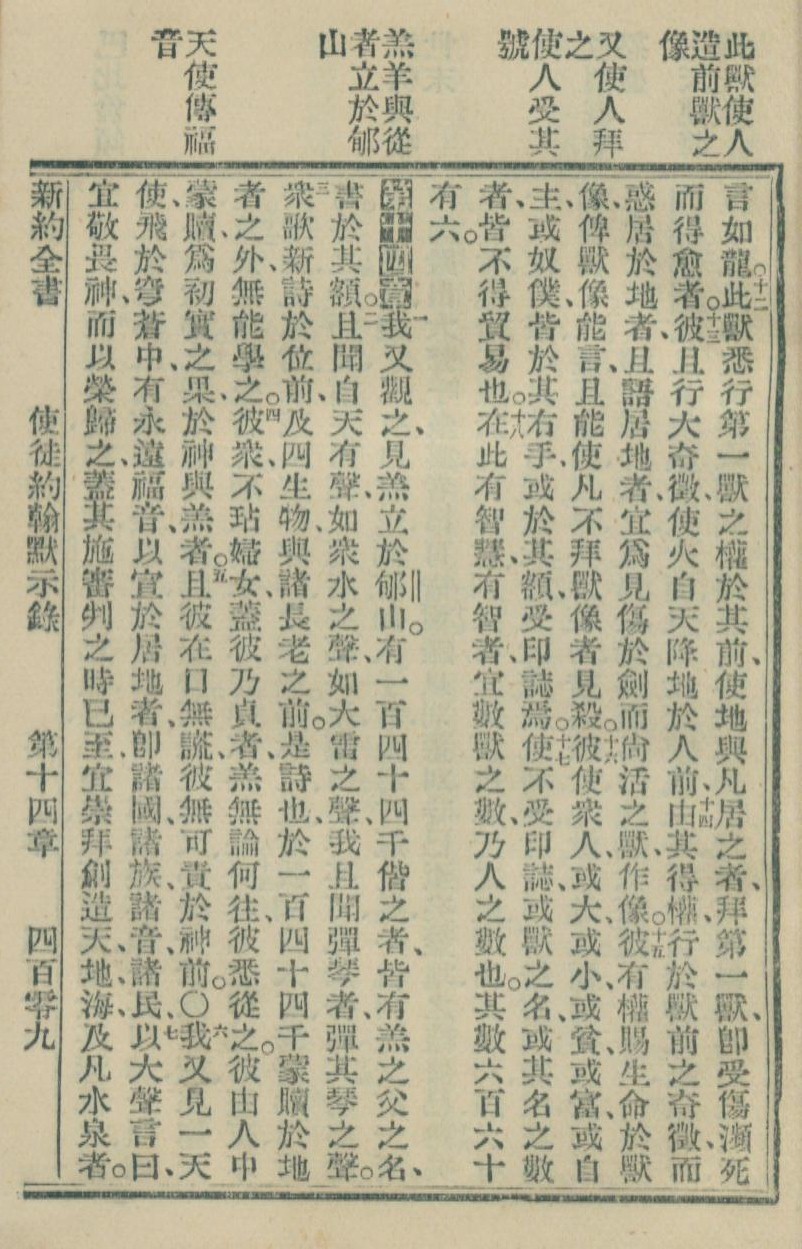 此獸使人
造前獸之
像
又使人拜
之
使人受其
號
羔羊與從
者立於郇
山
天使傳福
音
言如龍。十二此獸悉行第一獸之權於其前、使地與凡居之者、拜第一獸、卽受傷瀕死
而得愈者。十三彼且行大奇徵、使火自天降地於人前、十四由其得權、行於獸前之奇徵、而
惑居於地者、且語居地者、宜爲見傷於劍而尙活之獸、作像。十五彼有權賜生命於獸
像、俾獸像能言、且能使凡不拜獸像者見殺。十六彼使衆人、或大、或小、或貧、或富、或自
主、或奴僕、皆於其右手、或於其額、受印誌焉、十七使不受印誌、或獸之名、或其名之數
者、皆不得貿易也。十八在此有智慧、有智者、宜數獸之數、乃人之數也。其數六百六十
有六。
第十四章一我又觀之、見羔立於郇山。有一百四十四千偕之者、皆有羔之父之名、
書於其額。二且聞自天有聲、如衆水之聲、如大雷之聲、我且聞彈琴者、彈其琴之聲。
三衆歌新詩於位前、及四生物、與諸長老之前。是詩也、於一百四十四千蒙贖於地
者之外、無能學之。四彼衆、不玷婦女、蓋彼乃貞者、羔無論何往、彼悉從之。彼由人中
蒙贖、爲初實之果、於神與羔者。五且彼在口無謊、彼無可責於神前。〇六我又見一天
使、飛於穹蒼中、有永遠福音、以宣於居地者、卽諸國、諸族、諸音、諸民、七以大聲言曰、
宜敬畏神、而以榮歸之、蓋其施審判之時已至、宜崇拜創造天、地、海、及凡水泉者。
新約全書 使徒約翰默示錄 第十四章 四百零九